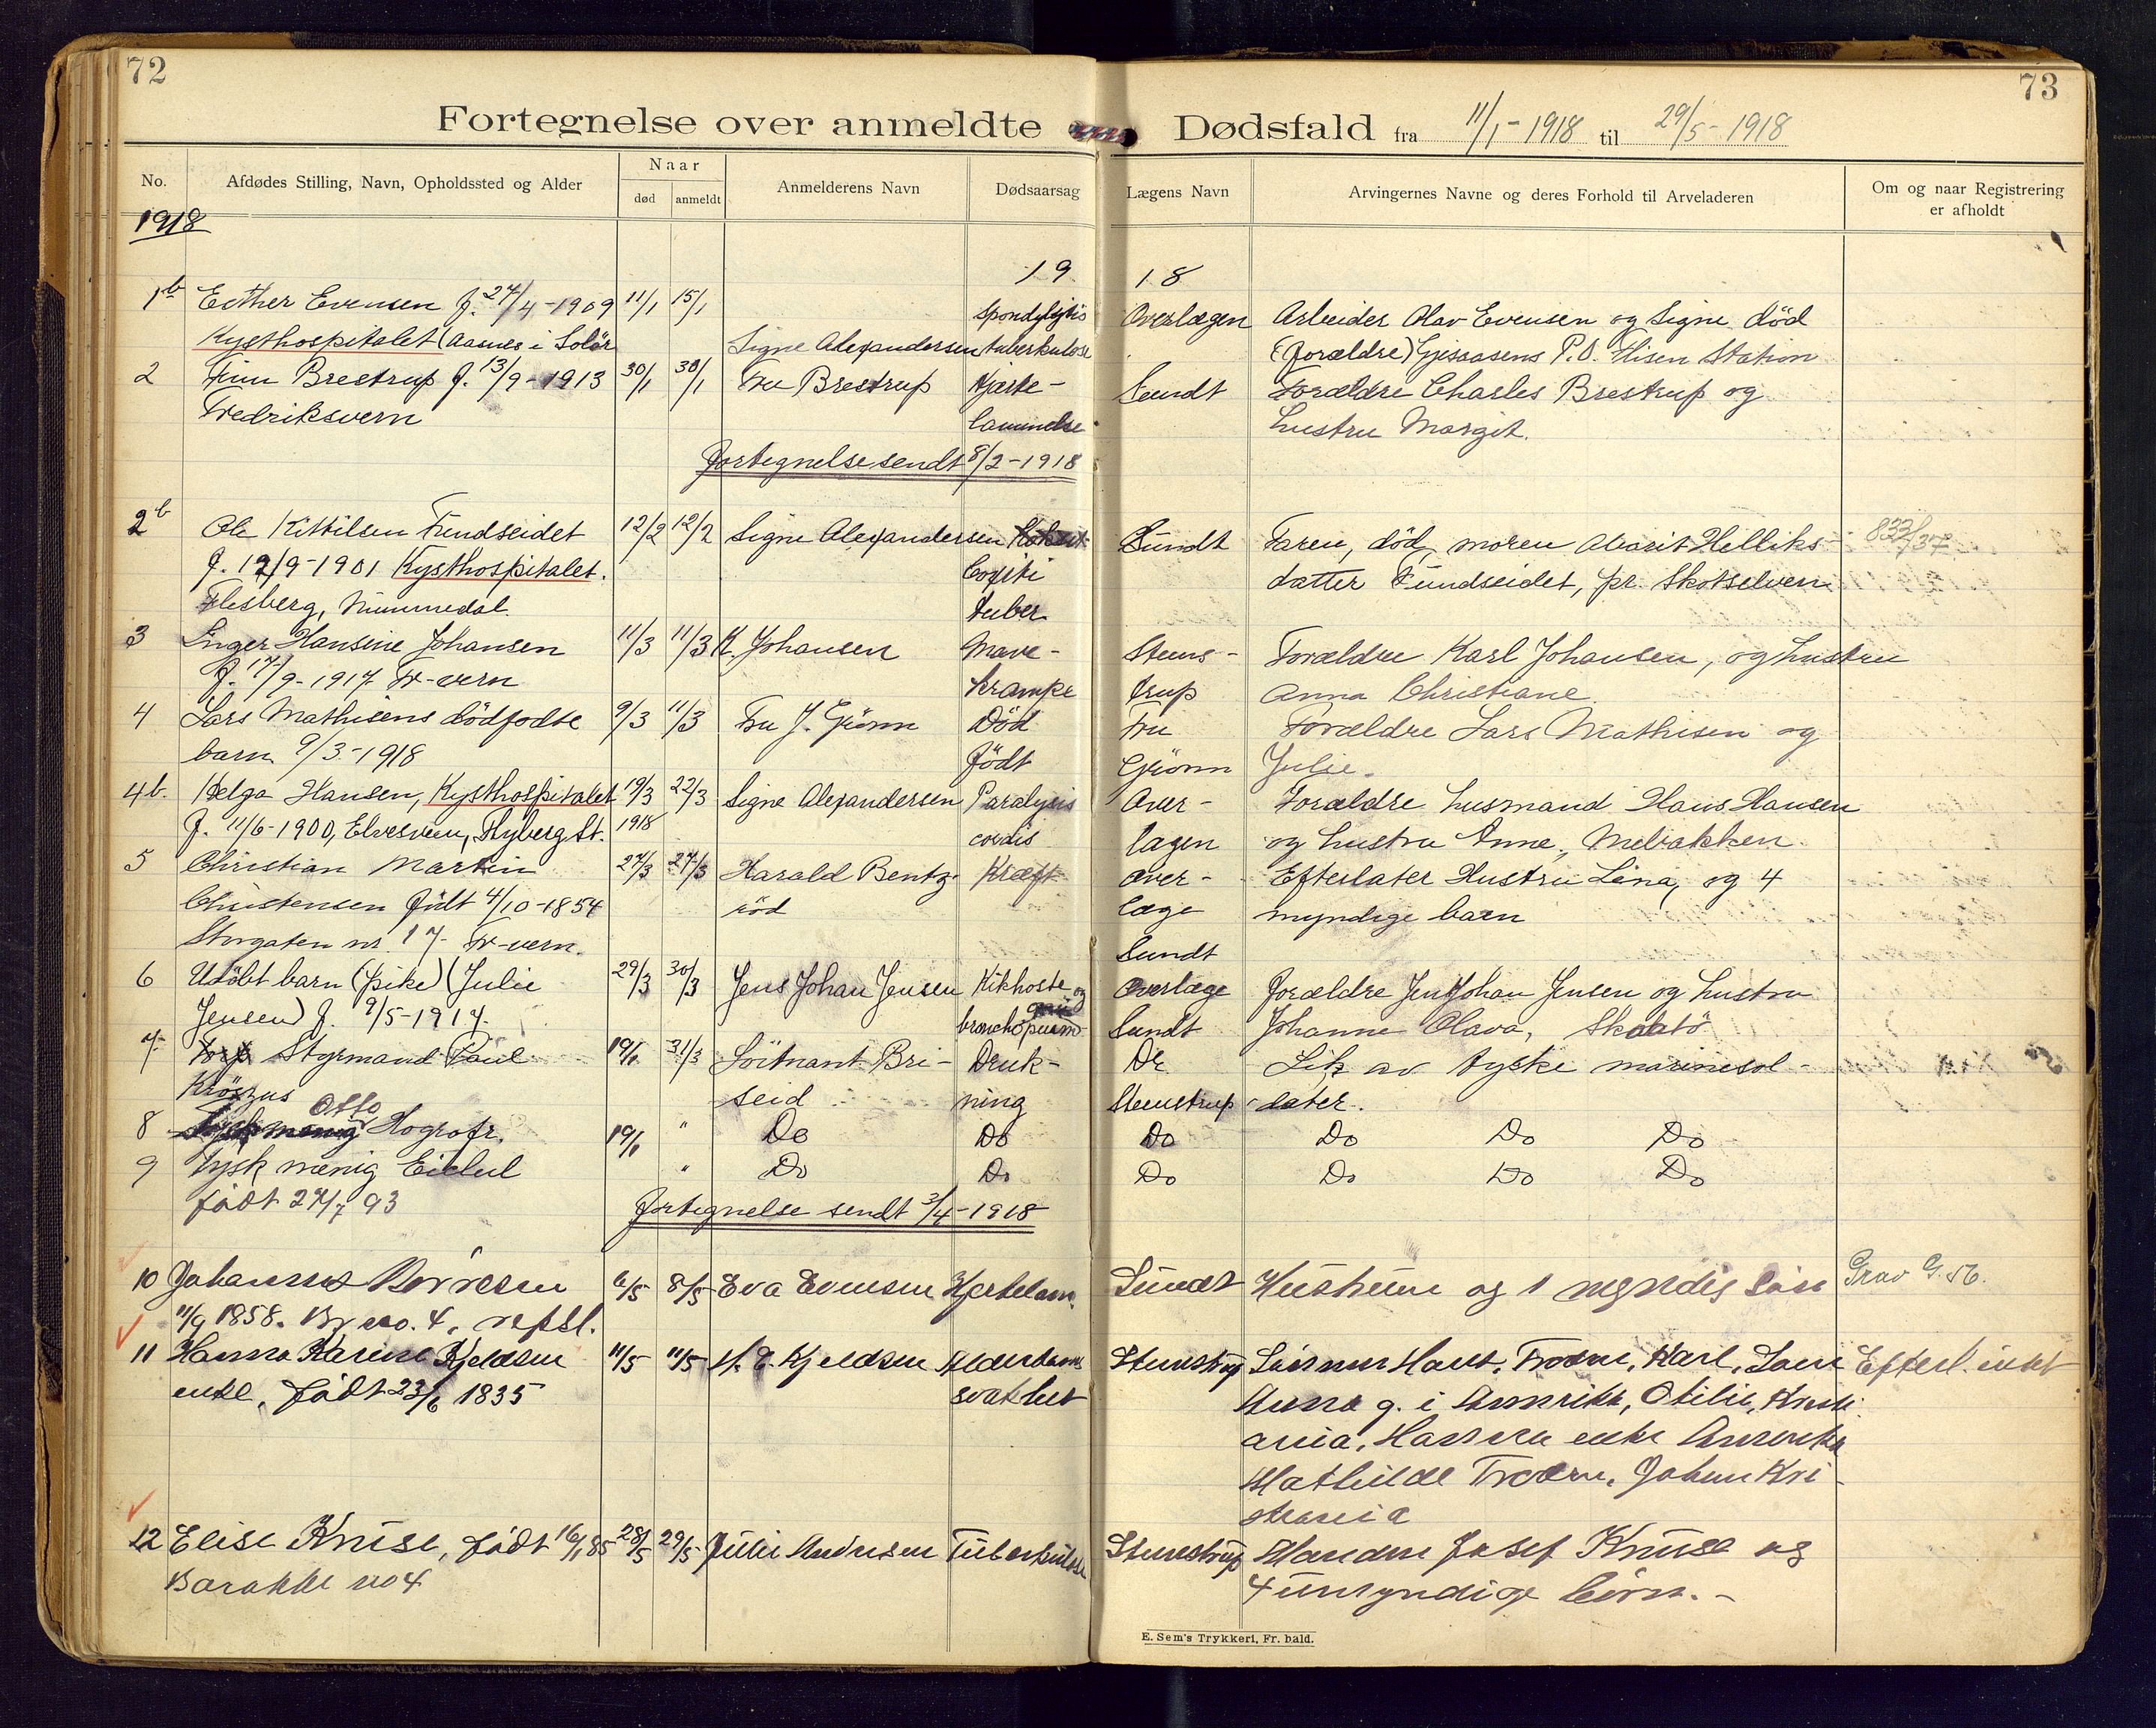 72
73
Fortegnelse over anmeldte Dødsfald fra 11/1-1918 til 29/5-1918
No. Afdødes Stilling, Navn, Opholdssted og Alder
Naar
død anmeldt
Anmelderens Navn Dødsaarsag
Lægens Navn Arvingernes Navne og deres Forhold til Arveladeren
Om og naar Registrering
er afholdt
1918
19 18
1b Esther Evensen f. 27/4-1909 11/1 15/1 Spondylitis Overlægen Arbeider Olav Evensen og Signe død
Kysthospitalet (Aasnes i Solør Signe Alexandersen tuberkulose (forældre) Gjesaasens P.O. Flisen Station
2 Finn Brestrup f. 13/9-1913 30/1 30/1 Fru Brestrup Hjerte- Sundt Forældre Charles Brestrup og
Fredriksvern lammelse hustru Margit.
Fortegnelse sendt 8/2-1918
2b Ole Kittilsen Fundseidet 12/2 12/2 Signe Alexandersen Sundt Faren, død, moren Aborit Helliks- 833/37
f. 12/9-1901 Kysthospitalet. Coxiti datter Fundseidet, pr. Skotselven
Flesberg, Nummedal. tuber
3 Inger Hansine Johansen 11/3 11/3 K. Johansen Mave- Steens- Forældre Karl Johansen, og hustru
f. 17/9-1917 Fr-vern krampe trup Anna Christiane
4 Lars Mathisens dödfødte 9/3 11/3 Fru J. Grönn Död Fru Forældre Lars Mathisen og
barn 9/3-1918 født Grönn Julie.
4b. Helga Hansen, Kysthospitalet 19/3 22/3 Signe Alexandersen Paralysis Over- Forældre husmand Hans Hansen
f. 11/6-1900, Elvesveen, Flyberg St. 1918 cordis lægen og hustru Anne, Melbakken.
5 Christian Martin 27/3 27/3 Harald Bentz- Kræft Over- Efterlater Hustru Lina, og 4
Christensen født 4/10-1854 röd læge myndige barn
Storgaten nr 17 Fr-vern. Sundt
6 Udöbt barn (pike) (Julie 29/3 30/3 Jens Johan Jensen Kikhoste og Overlæge forældre Jens Johan Jensen og hustru
Jensen) f. 9/5-1917. bronchopneum- Sundt Johanne Olava, Skaatö
7 Styrmand Paul 31/3 Löitnant Bri- Druk- Dr Lik av tyske marinesol-
Krözus seid ning Steenstrup dater.
8 Otto Hogrofr. " Do Do Do Do Do Do
9 Tysk menig Eichel " Do Do Do Do Do Do
født 27/7 93 Fortegnelse sendt 3/4-1918
10 Johannes Borresen 6/5 8/5 Eva Evensen Hjertelam. Sundt Hustruen og 1 myndig Søn Grav G. 56.
11/9 1858. Br no. 4, repsl.
11 Hanna Karine Kjeldsen 11/5 11/5 H. E. Kjeldsen Alderdoms Steenstrup Sönner Hans, Fræern, Karl,
enke, født 23/6 1835 svakhet Anna g. i Amerika, Otilie, Kristi
ania, Hanna enke Amerika
Mathilde Fræern, Johan Kri-
stania
12 Elise Kruse, født 16/1 85 28/5 29/5 Julie Andresen Tuberkulose Steenstrup Manden Josef Kruse og
Barakke no 4 4 umyndige börn. -
E. Sem's Trykkeri, Fr. hald.